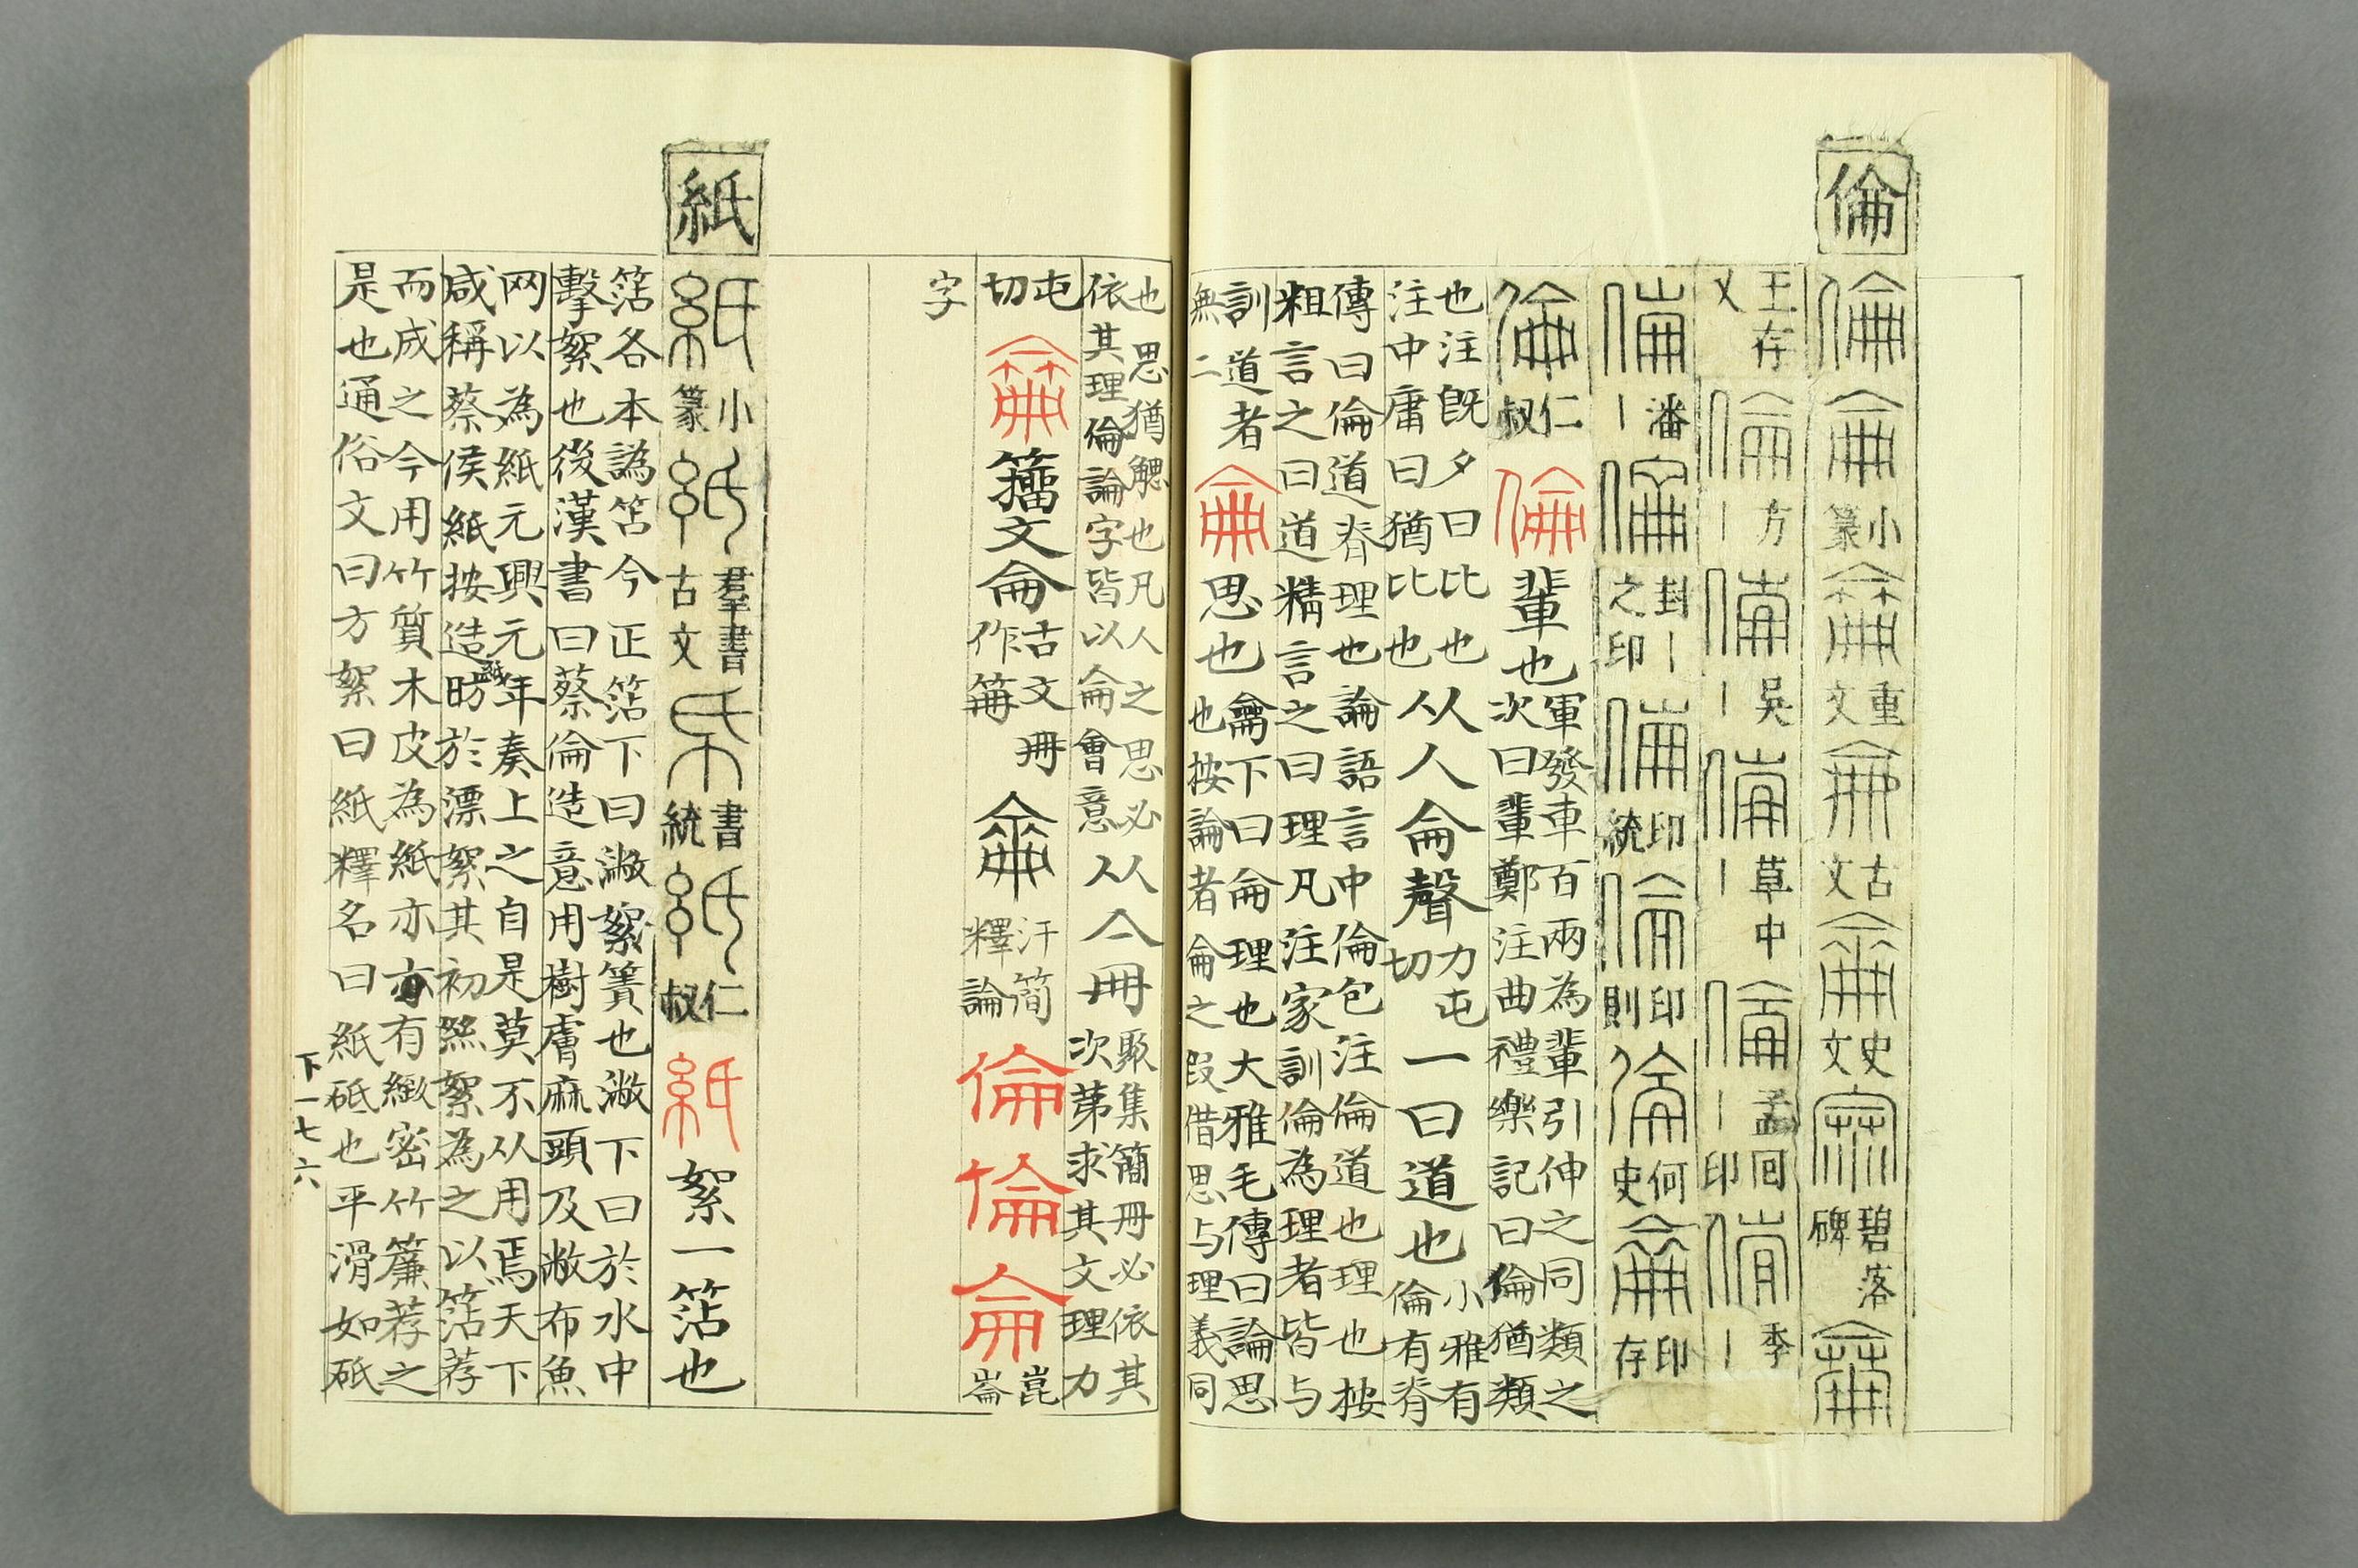 倫
倫侖小篆侖重文侖古文侖史文侖碧落碑侖
王存乂倫方丨倫吳丨倫草中丨倫孟回丨印倫季丨
倫潘丨倫封丨之印倫印統倫印則倫何史侖印存
倫仁叔倫輩也軍發車百兩為輩引伸之同類之次曰輩鄭注曲禮樂記曰倫猶類
也注既夕曰比也注中庸曰猶比也从人侖聲力屯切一曰道也小雅有倫有脊
傳曰倫道脊理也論語言中倫包注倫道也理也按粗言之曰道精言之曰理凡注家訓倫為理者皆与
訓道者無二侖思也龠下曰侖理也大雅毛傳曰論思也按論者侖之假借思与理義同
也思猶䚡也凡人之思必依其理倫論字皆以侖會意从亼冊聚集簡冊必依其次第求其文理力
屯切侖籀文侖古文冊作𠕋侖汗簡釋論倫倫侖崑崙
字
紙
紙小篆紙羣書古文帋書統紙仁叔紙絮一箈也
箈各本譌笘今正箈下曰潎絮簀也潎下曰於水中擊絮也後漢書曰蔡倫造意用樹膚麻頭及敝布魚
网以為紙元興元年奏上之自是莫不从用焉天下咸稱蔡侯紙按造紙昉於漂絮其初絲絮為之以箈荐
而成之今用竹質木皮為紙亦亦有緻密竹簾荐之是也通俗文曰方絮曰紙釋名曰紙砥也平滑如砥
下一七六